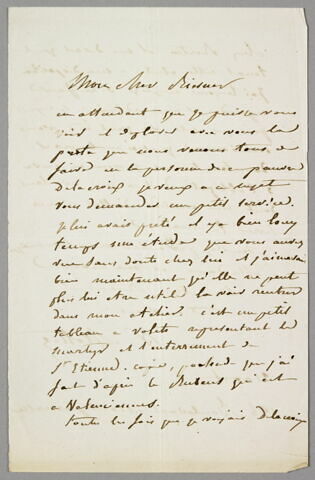 Mon cher Riesener
en attendant que je puisse vous
voir et déplorer avec vous la
perte que nous venons tous de
faire en la personne de ce pauvre
delacroix je veux a ce sujet
vous demander un petit service.
je lui avais prêté il y a bien long
temps une étude que vous aurez
vue sans doute chez lui et j'aimerais
bien maintenant qu'elle ne peut
plus lui être utile la voir rentrer
dans mon atelier. c'est un petit
tableau a volets représentant le
martyre et l'enterrement de
St Etienne. copie, pochade que j'ai
fait d'après le Rubens qui est
a Valenciennes.
toutes les fois que je voyais Delacroix